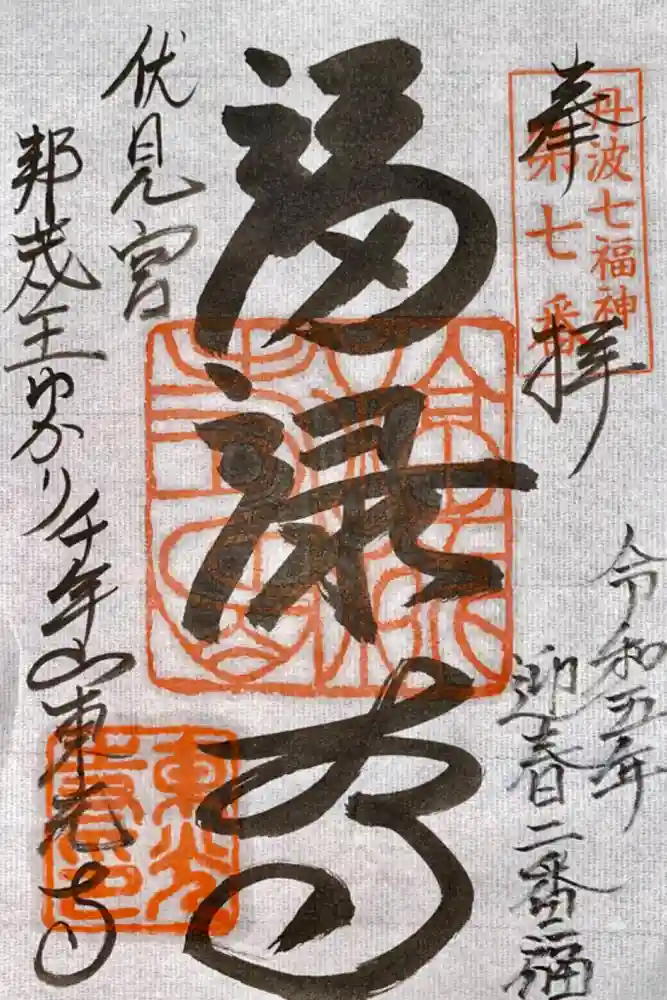 奉拝
丹波七福神
第七番
令和五年
迎春二番福
福禄寿
伏見宮
邦茂王ゆかり千年山東光寺